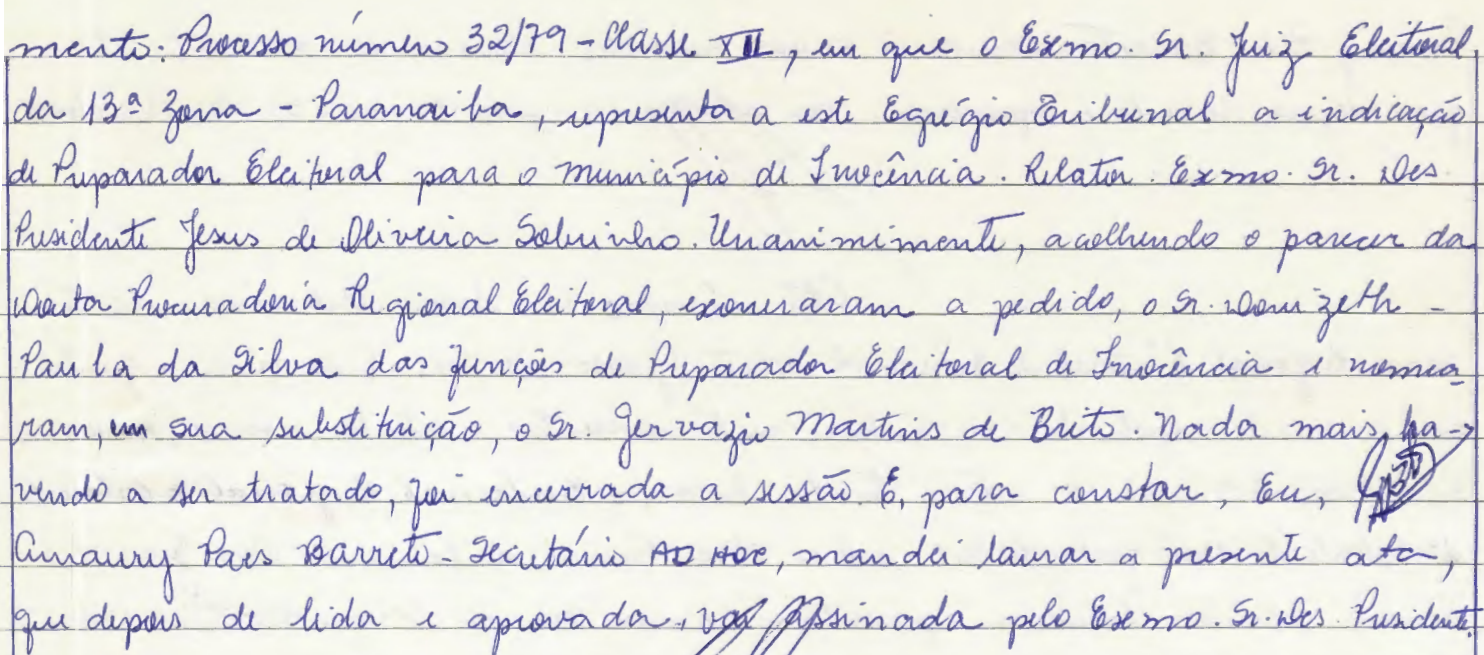 mento: Processo número 32/79 - Classe XII, em que o Exmo. Sr. Juiz Eleitoral
da 13ª Zona - Paranaiba, representa a este Egrégio Tribunal a indicação
de Preparador Eleitoral para o município de Inocência. Relator. Exmo. Sr. Des.
Presidente Jesus de Oliveira Sobrinho. Unanimimente, acolhendo o parecer da
Douta Procuradoria Regional Eleitoral, exoneraram a pedido, o Sr. Donizeth -
Paula da Silva das funções de Preparador Eleitoral de Inocência e nomea
ram, em sua substituição, o Sr. Gervazio Martins de Brito. Nada mais, ha-
vendo a ser tratado, foi encerrada a sessão. E, para constar, Eu,
Amaury Paes Barreto - Secretário AD HOC, mandei lavrar a presente ata,
que depois de lida e aprovada, vai assinada pelo Exmo. Sr. Des. Presidente.